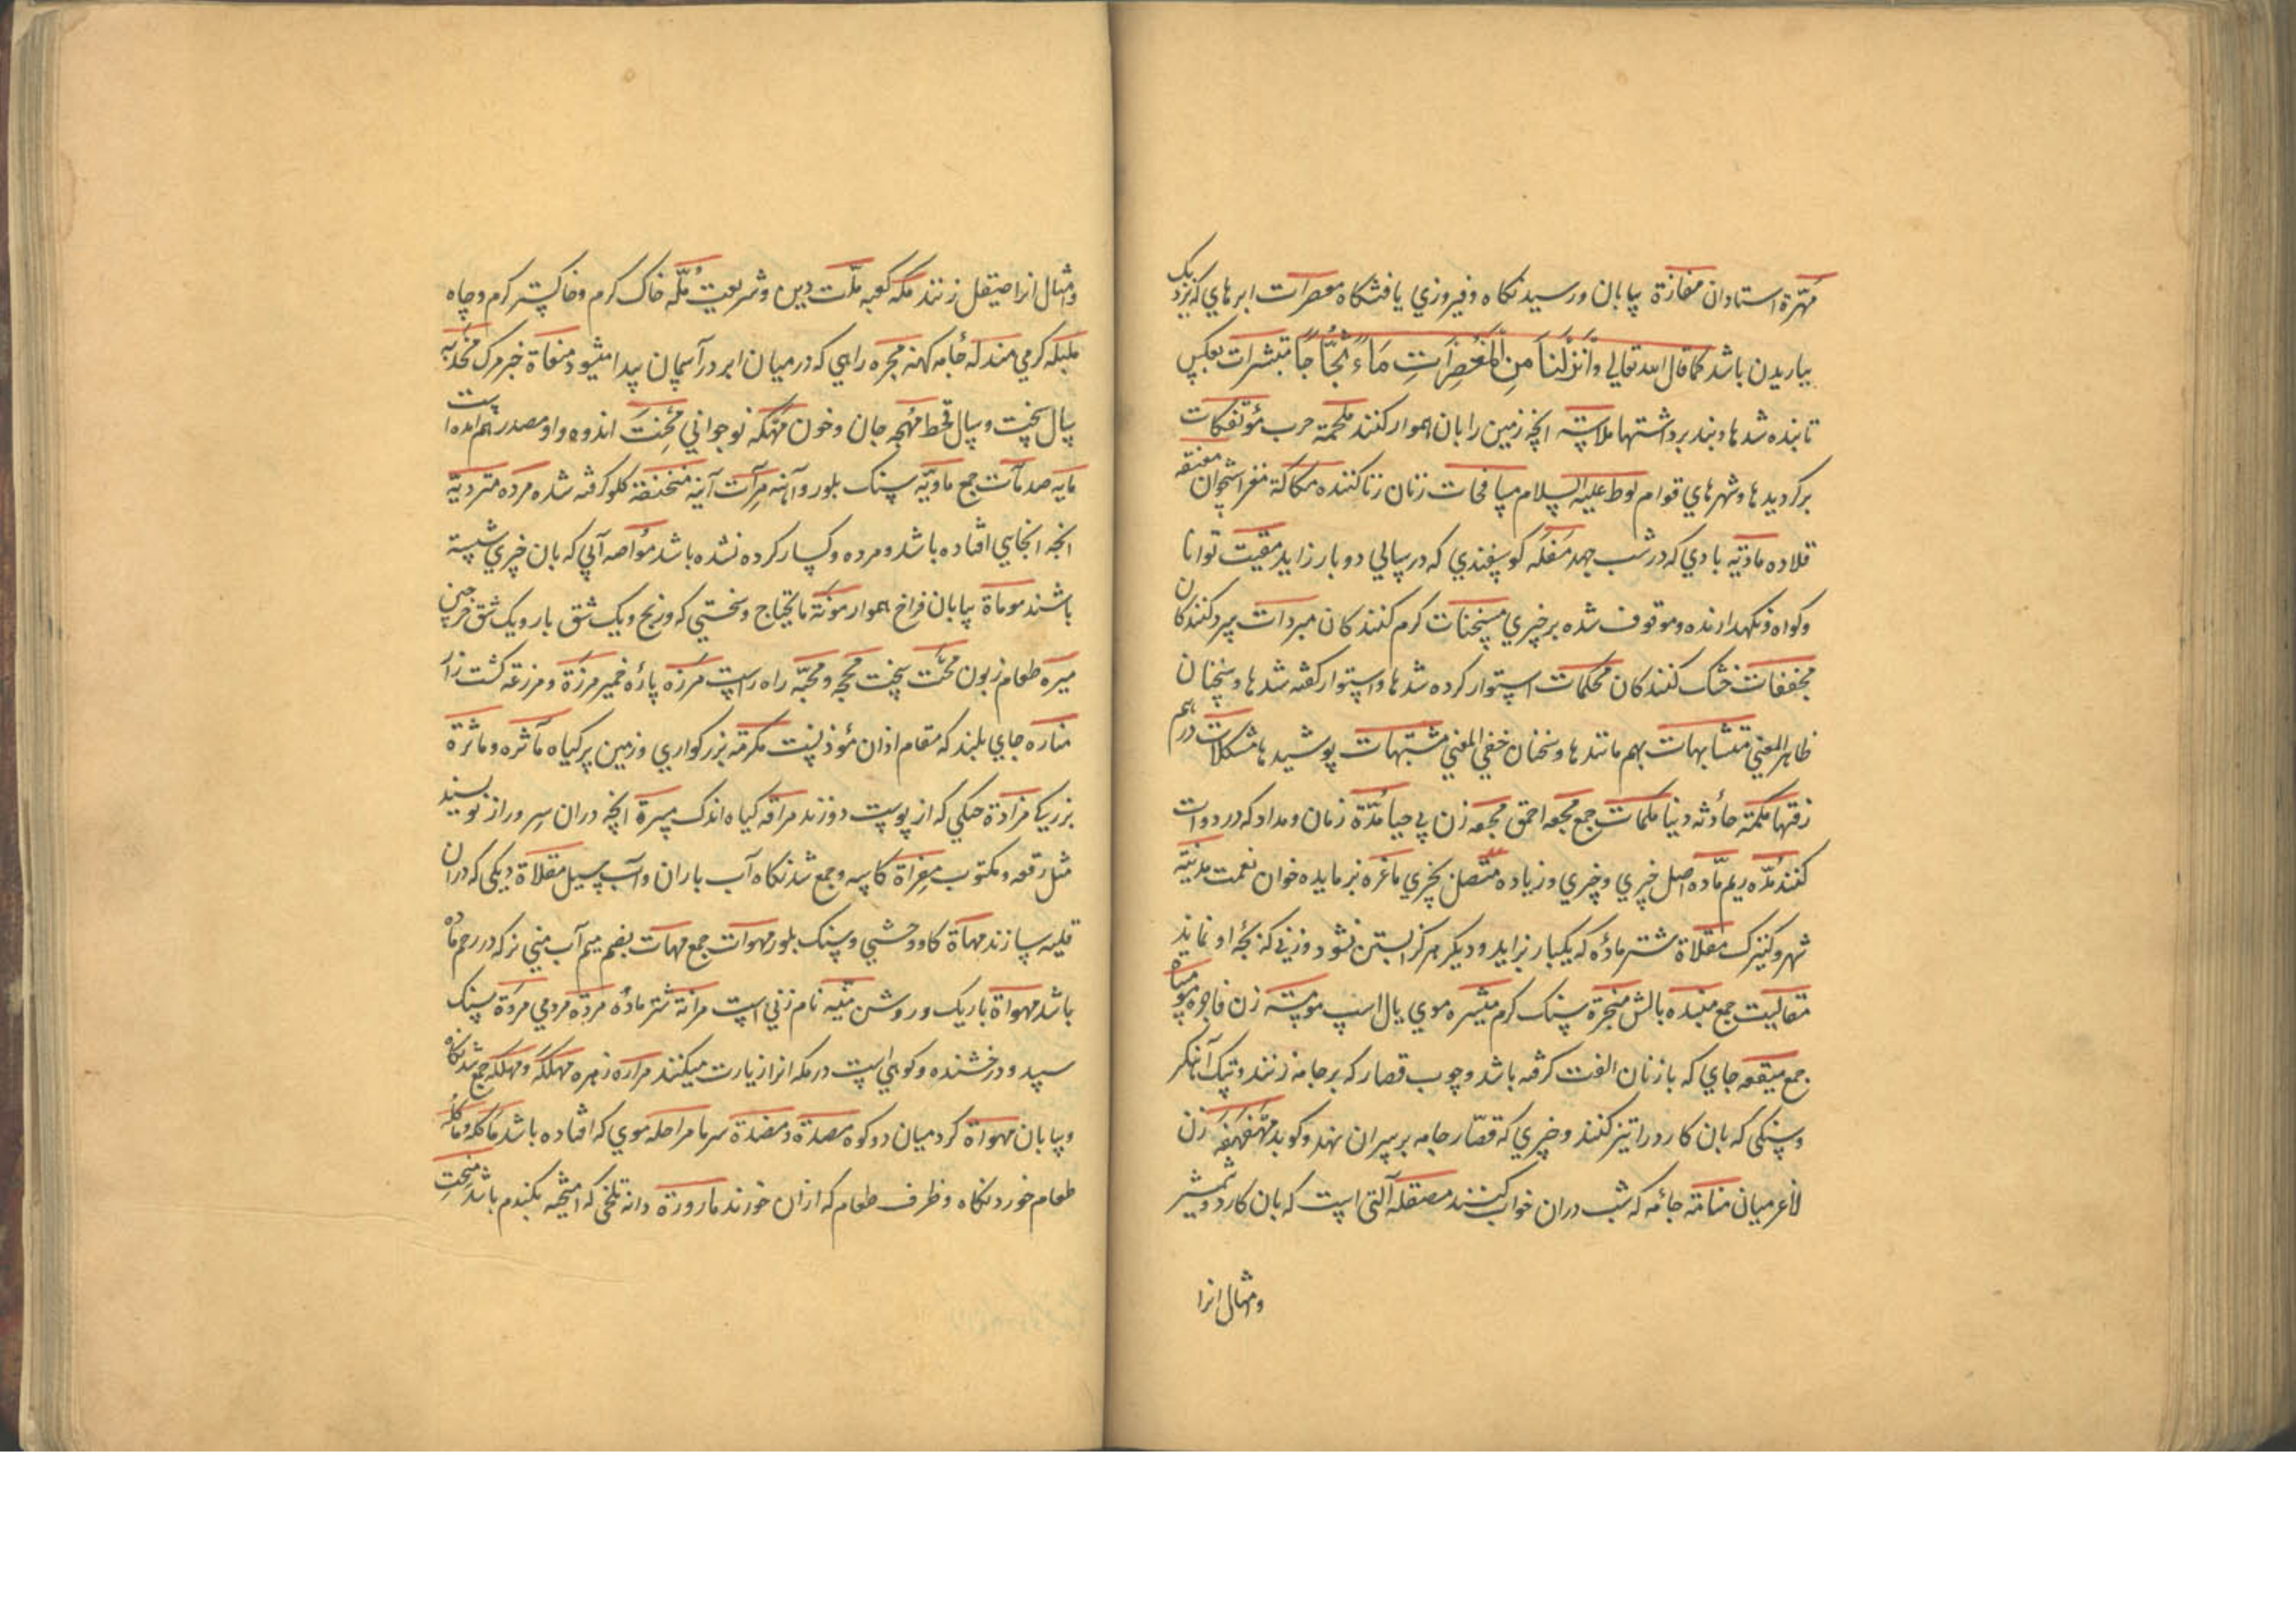 مهرة استادان مفازة بیابان ورسیدنکاه وفیروزي یافتنکاه معصرات ابرهاي که نزدیک
بباریدن باشد کما قال الله تعالي وَأَنْزَلْنَا مِنَ الْمُعْصِرَاتِ مَاءً ثَجَّاجًا مبشرات بعکس
تابنده شدها وبند برداشتها انچه زمین را بان هموار کنند ملحمة حرب مؤتفکات
برکردیدها وشهرهاي قوام لوط علیه السلام مسافحات زنان زنا کننده مکاکة مغز استخوان
قلاده بادي که در شب جهد کوسفندي که در سالي دو بار زاید مقیت توانا
وکواه ونکهدارنده وموقوف شده بر چیزي مسخنات کرم کنندکان مبردات سرد کنندکان
مجففات خشک کنندکان محکمات استوار کرده شدها واستوار کفته شدها وسخنان
ظاهر المعني متشابهات بهم مانندها وسخنان خفي المعني مشتبهات پوشیدها مشکلات درهم
رفتها ملمة حادثه دنیا ملمات جمع مجعه احمق مجعه زن بي حیا مدّة زمان ومداد که در دوات
کنند مدّه ریم مادّه اصل چیزي وچیزي وزیاده متصل بچیزي ماعزه بز مایده خوان نعمت مدینة
شهر وکنیزک مقلاة شتر ماده که یکبار بزاید ودیکر هرکز ابستن نشود وزني که بچه او نماید
مقالیت جمع بالش سنک کرم میثره موي یال اسپ مومسة زن فاجره
جمع میقعه جاي که باز نان الفت کرفته باشد وچوب قصار که بر جامه زنند وپتک آهنکر
وسنکي که بان کارد را تیز کنند وچیزي که قصّار جامه بر سر ان نهد وکوبد مهفهفة زن
لاغر میان منامة جامه که شب دران خواب کنند مصقله آلتي است که بان کارد وشمشیر
ومثال انرا
وامثال انرا صیقل زنند مکه کعبه ملّت دین وشریعت مُلّه خاک کرم وخاکستر کرم وچاه
کرمي جامه کهنه مجره راهي که در میان ابر در آسمان پیدا میشود منعاة خبر مرک
سال سخت وسال قحط مهجه جان وخون نوجواني محنت اندوه واو مصدر هم امده است
مایه صد مآت جمع ماویّه سنک بلور وآینه مرآت آینه منخنقة کلو کرفته شده مرده متردیّة
انچه از جاي افتاده باشد ومرده وکسار کرده نشده باشد مواصه آبي که بان چیزي شسته
باشند موماة بیابان فراخ هموار مونة مایحتاج وسختي که ورنج ویک شق بار ویک شق خرجین
میره طعام زبون سخت محجه ومحجّه راه راست مرزه پاره خمیر مرزة ومزرعه کشت زار
مناره جاي بلند که مقام اذان مؤذنست مکرمة بزرکواري وزمین پر کیاه مآثره وماثرة
بزرکي مزادة مشکي که از پوست دوزند مراقه کیاه اندک انچه دران سر وراز نویسند
مثل رقعه ومکتوب مقراة کاسه وجمع شدنکاه آب باران وآب سیل مقلاة دیکي که دران
قلیه سازند مهاة کاو وحشي وسنک بلور مهوات جمع مهات بضم میم آب مني نر که در رحم ماده
باشد مهواة باریک وروشن منیه نام زني است مرانة شتر ماده مردّه مردمي مروة سنک
سپید ودرخشنده وکوهي است در مکه انرا زیارت میکنند مراره زهره مهلکَة ومهلکه جمع شدنکاه
وبیابان مهواة کرد میان دو کوه سرما موي که افتاده باشد ماکله وماکله
طعام خوردنکاه وظرف طعام که ازان خورند ماروزة دانه تلخي که امیخته بکندم باشد